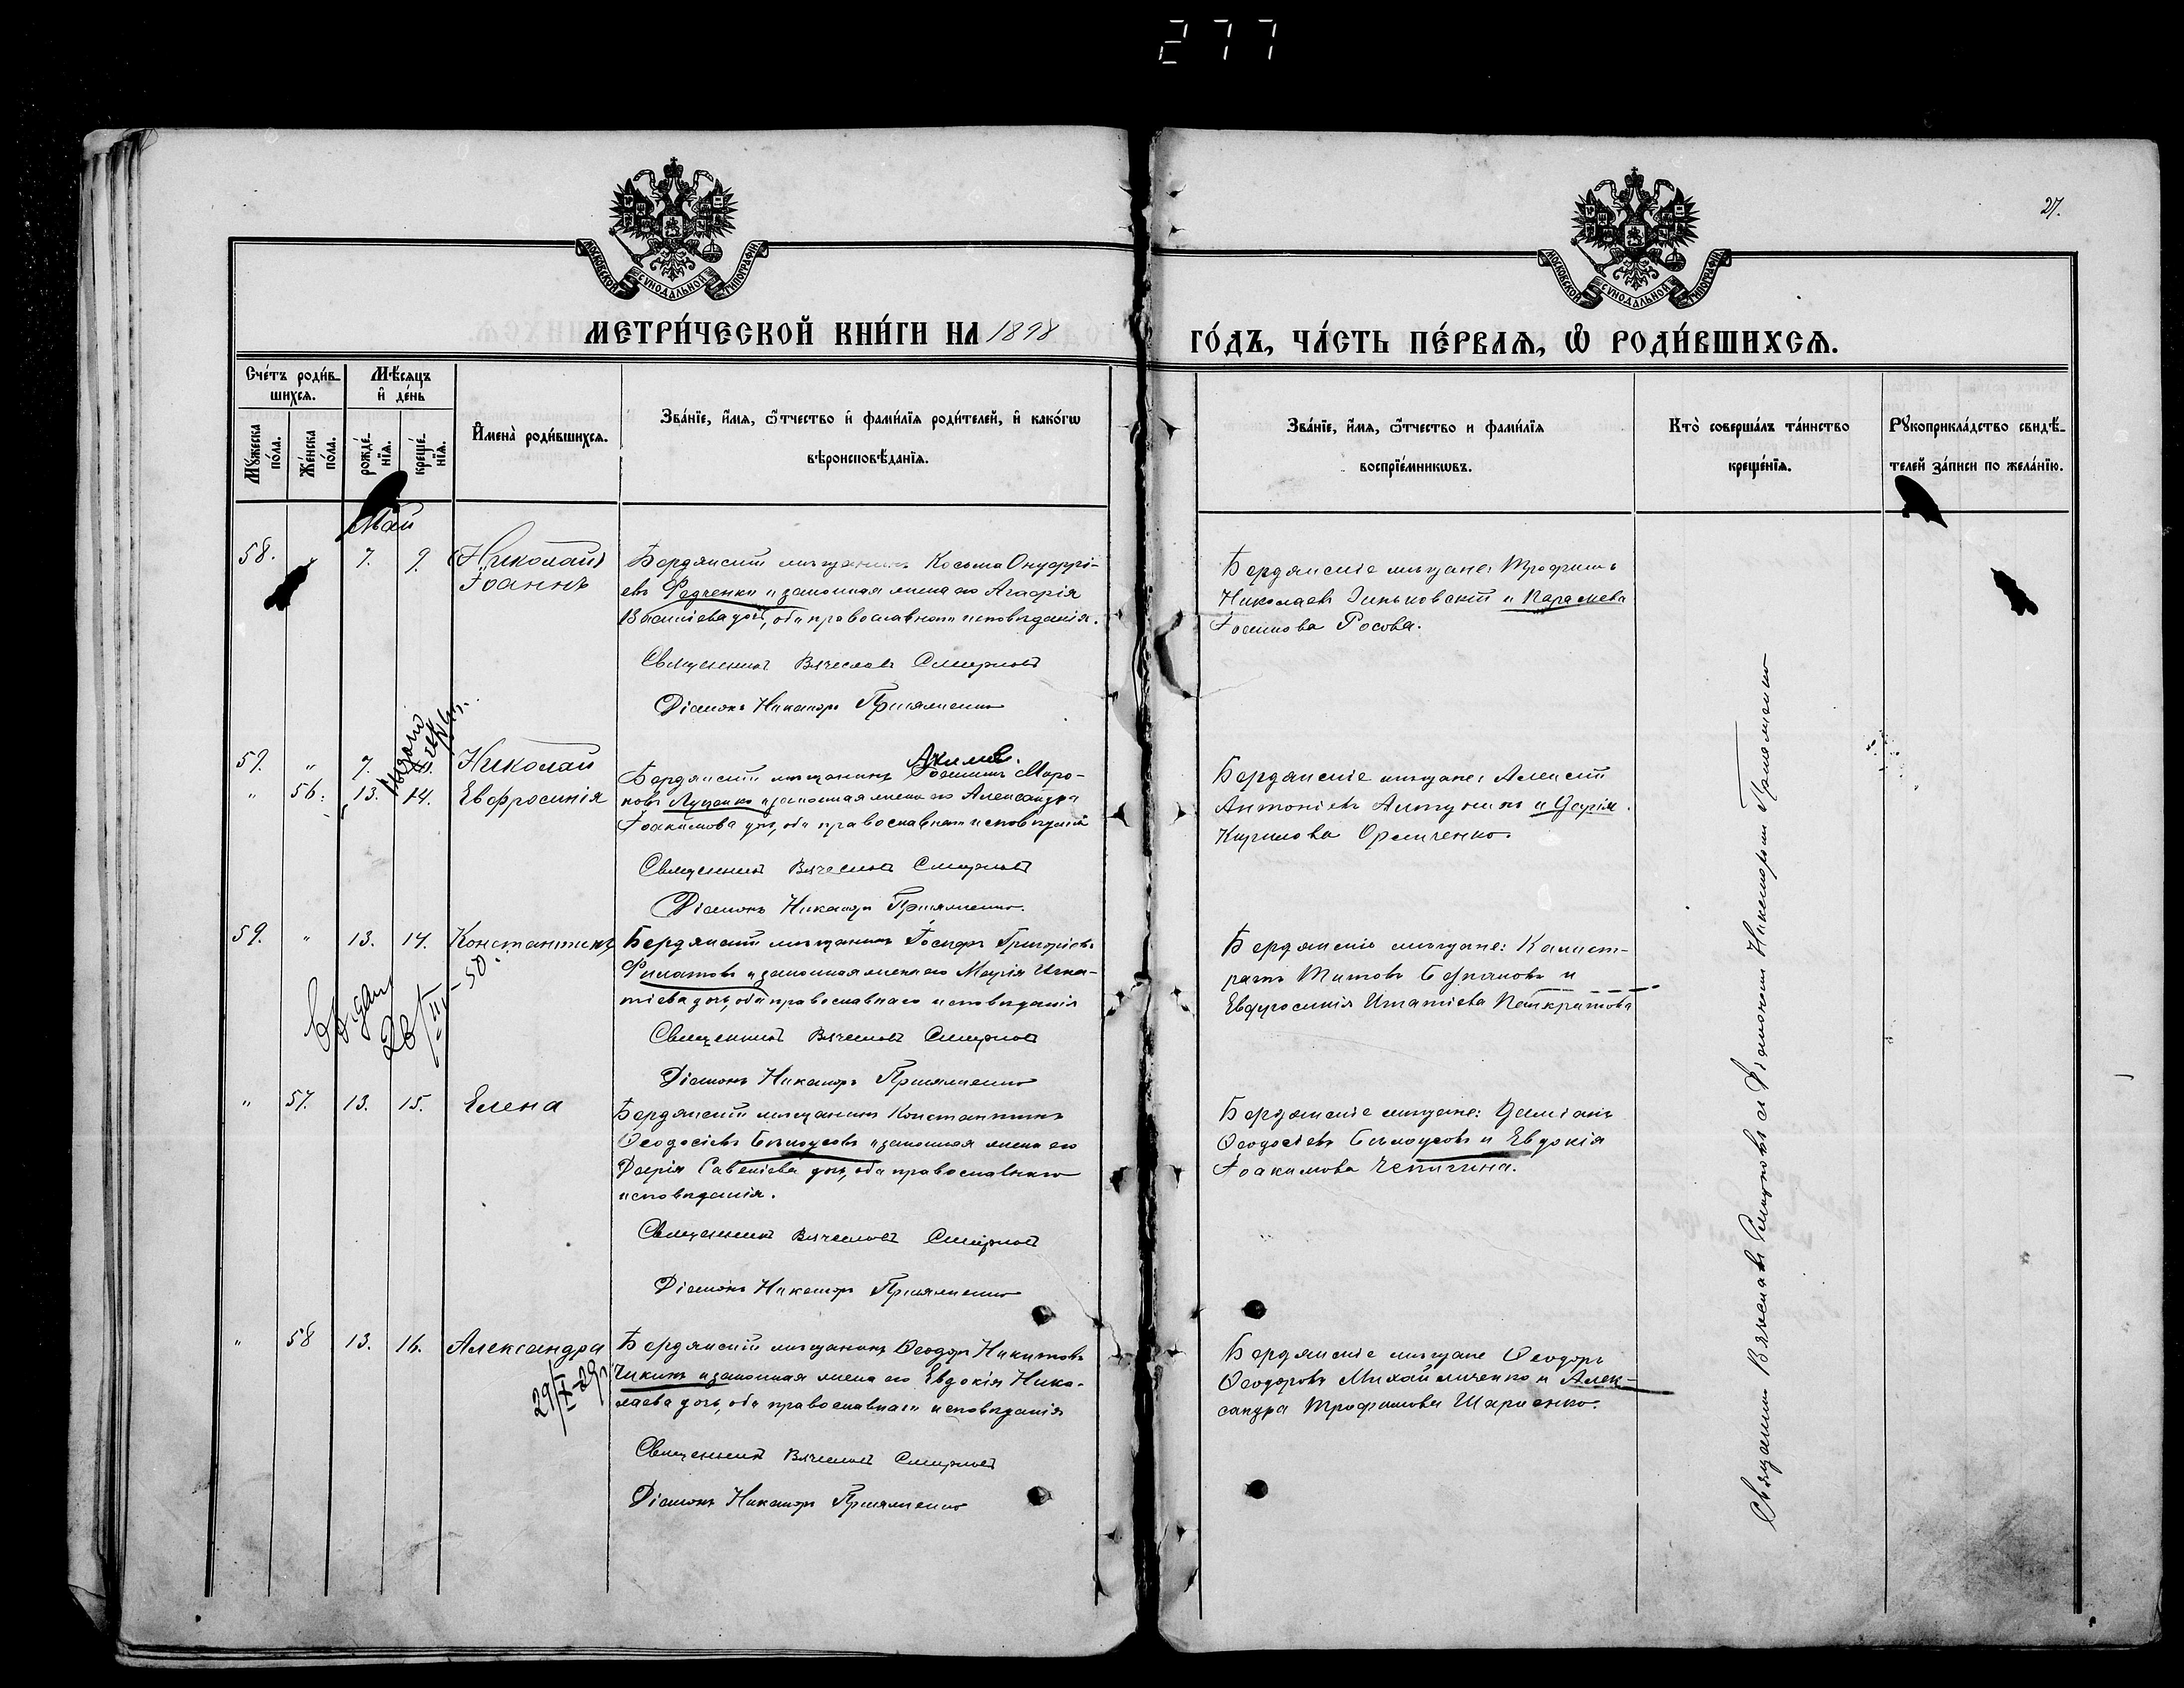 277
27.
МОСКОВСКОЙ СѴНОДАЛЬНОЙ ТИПОГРАФІИ
МОСКОВСКОЙ СѴНОДАЛЬНОЙ ТИПОГРАФІИ
МЕТРИ́ЧЕСКОЙ КНИ́ГИ НА 1898
ГО́ДЪ, ЧА́СТЬ ПЕ́РВАѦ, Ѡ҆ РОДИ́ВШИХСѦ.
Сче́тъ роди́в-
шихсѧ.
Мѣ́сѧцъ
и҆ де́нь
Мꙋ́жеска
по́ла.
Же́нска
по́ла.
рожде́-
нїѧ.
креще́-
нїѧ.
И҆мена̀ роди́вшихсѧ.
Зва́нїе, и҆́мѧ, ѻ҆́тчество и҆ фами́лїѧ роди́телей, и҆ како́гѡ
вѣроисповѣ́данїѧ.
Зва́нїе, и҆́мѧ, ѻ҆́тчество и фами́лїѧ
воспрїе́мникѡвъ.
Кто̀ соверша́лъ та́инство
креще́нїѧ.
Рꙋкоприкла́дство свидѣ́-
телей за́писи по жела́нїю.
Май
58. " 7. 9. (Николай)
Іоаннъ
Бердянскій мѣщанинъ Косьма Онуфрі-
евъ Федченко и законная жена его Агафія
Василіева дочь, оба православнаго исповѣданія.
Священникъ Вячеславъ Смирновъ
Діаконъ Никаноръ Приямченко
Бердянскіе мѣщане: Трофимъ
Николаевъ Зиньковскій и Параскева
Іоакимова Росова.
59. " 7. Николай
" 56. 13. 14. Евфросинія
Бердянскій мѣщанинъ Миро-
Акимъ.
новъ Луценко и законная жена его Александра
Іоакимова дочь, оба православнаго исповѣданія
Священникъ Вячеславъ Смирновъ
Діаконъ Никаноръ Приямченко.
Бердянскіе мѣщане: Алексій
Антоніевъ и Дарія
Кирилова
59. " 13. 14. Константинъ
Выдан
26/III-50.
Бердянскій мѣщанинъ Іосифъ Григоріевъ
Филатовъ и законная жена его Марія Игна-
тіева дочь, оба православнаго исповѣданія
Священникъ Вячеславъ Смирновъ
Діаконъ Никаноръ Приямченко
Бердянскіе мѣщане: Калист-
ратъ Титовъ и
Евфросинія Игнатіева Панкратова
" 57. 13. 15. Елена
Бердянскій мѣщанинъ Константинъ
Ѳеодосіевъ Бѣлоусовъ и законная жена его
Дарія дочь, оба православнаго
исповѣданія.
Священникъ Вячеславъ Смирновъ
Діаконъ Никаноръ Приямченко
Бердянскіе мѣщане: Даміанъ
Ѳеодосіевъ Бѣлоусовъ и Евдокія
Іоакимова Чепигина.
" 58 13. 16. Александра
29/X-29г
Бердянскій мѣщанинъ Ѳеодоръ Никитовъ
Чикинъ и законная жена его Евдокія Нико-
лаева дочь, оба православнаго исповѣданія
Священникъ Вячеславъ Смирновъ
Діаконъ Никаноръ Приямченко
Бердянскіе мѣщане Ѳеодоръ
Ѳеодоровъ Михайличенко и Алек-
сандра Трофимова Шариенко.
Священникъ Вячеславъ Смирновъ съ Діакономъ Никаноромъ Приямченко